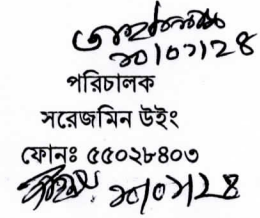 ৩০/০৭/২৪
পরিচালক
সরেজমিন উইং
ফোনঃ ৫৫০২৮৪০৩
৩০/০৭/২৪